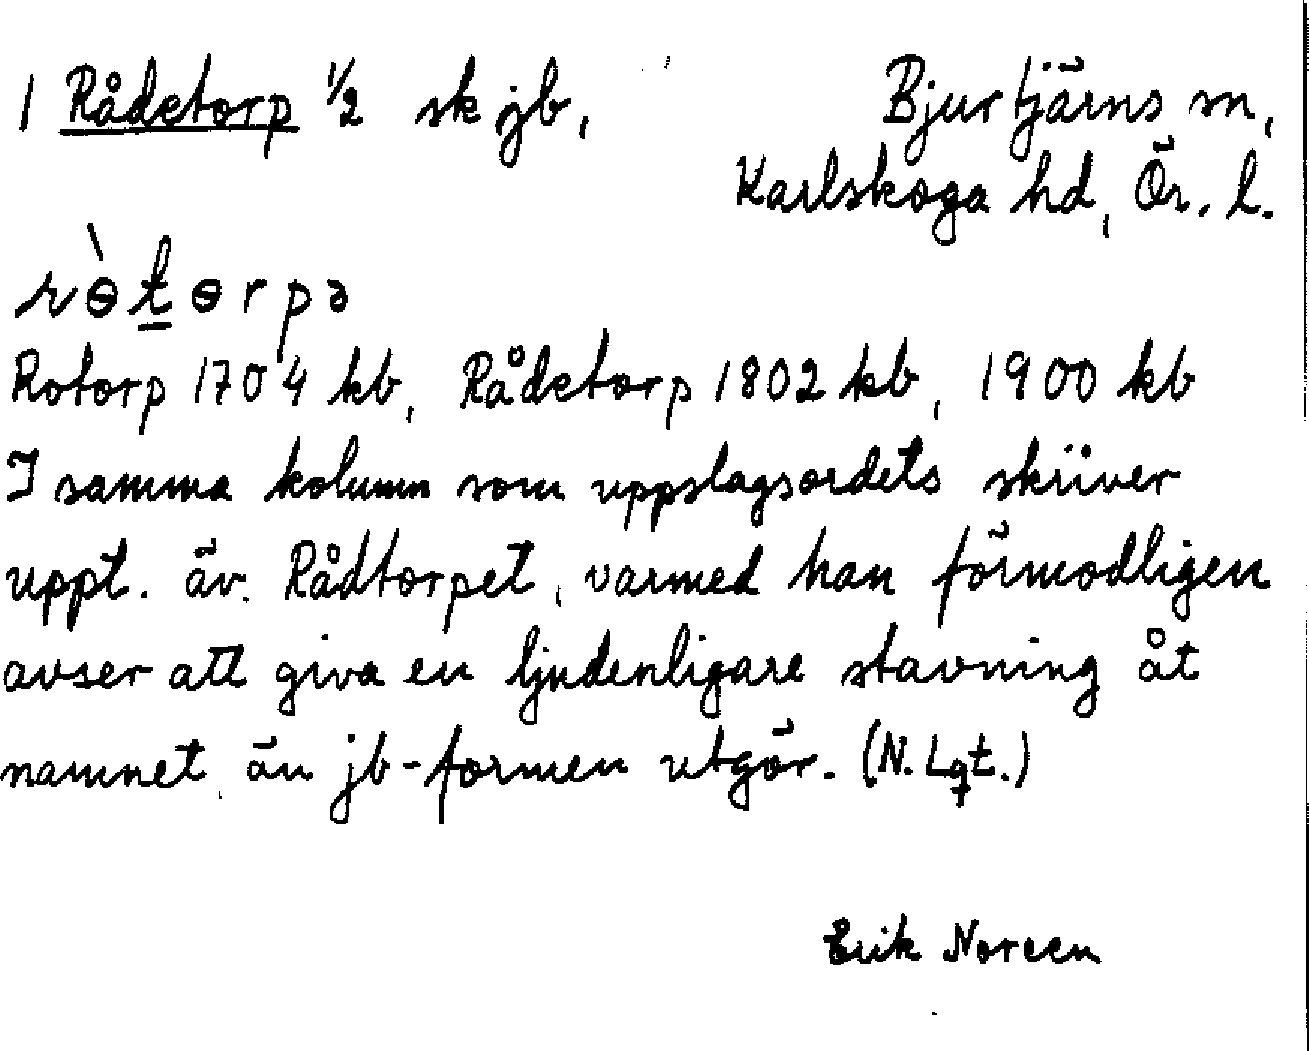 1 Rådetorp 1/2 sk jb, Bjurtjärns sn,
Karlskoga hd, Ör. l.
rɵ̀tɵrpə
Rotorp 1704 kb, Rådetorp 1802 kb, 1900 kb
I samma kolumn som uppslagsordets skriver
uppt. äv. Rådtorpet, varmed han förmodligen
avser att giva en ljudenligare stavning åt
namnet, än jb-formen utgör. (N. Lgt.)
Erik Noreen